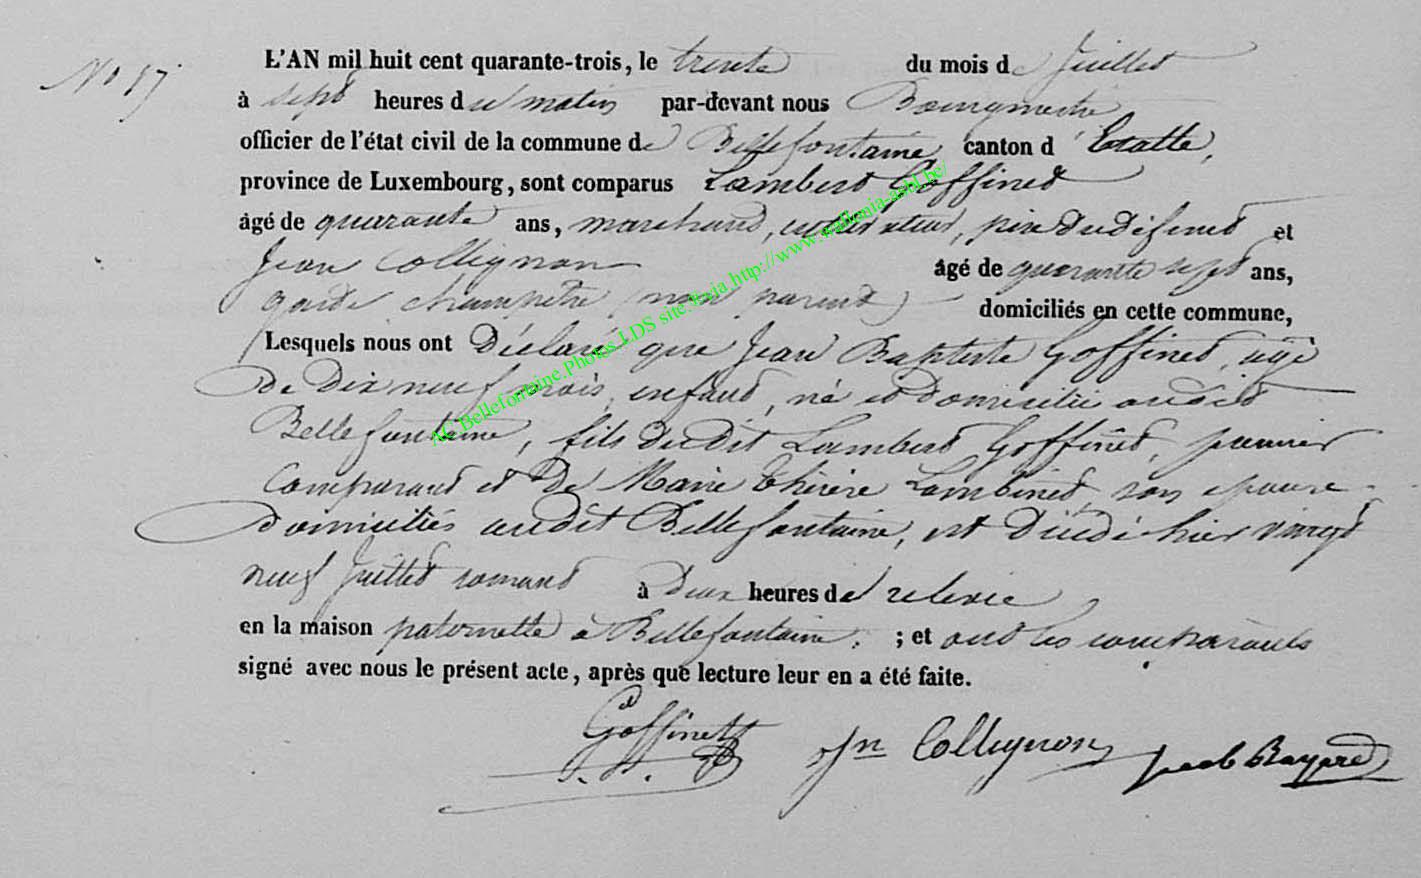 No 17
L'AN mil huit cent quarante-trois, le trente du mois de Juillet
à sept heures du matin par-devant nous Bourgmestre
officier de l'état civil de la commune de Bellefontaine, canton d'Etalle,
province de Luxembourg, sont comparus Lambert Goffinet
âgé de quarante ans, marchand, cultivateur, père du défunt et
Jean Collignon âgé de quarante sept ans,
garde champêtre (non parent) domiciliés en cette commune,
Lesquels nous ont Déclaré que Jean Baptiste Goffinet, agé
de Dix neuf mois, enfant, né et domicilié audit
Bellefontaine, fils dudit Lambert Goffinet, premier
Comparant et De Marie Thérèse Lambinet, son epouse
domiciliés audit Bellefontaine, est Décédé hier vingt
neuf Juillet courant à Deux heures de relevée
en la maison paternelle à Bellefontaine, ; et ont les comparants
signé avec nous le présent acte, après que lecture leur en a été faite.
Goffinet Jn Collignon Jacob Bayard
AC Bellefontaine.Photos LDS site. http://www.wallonia-asbl.be/